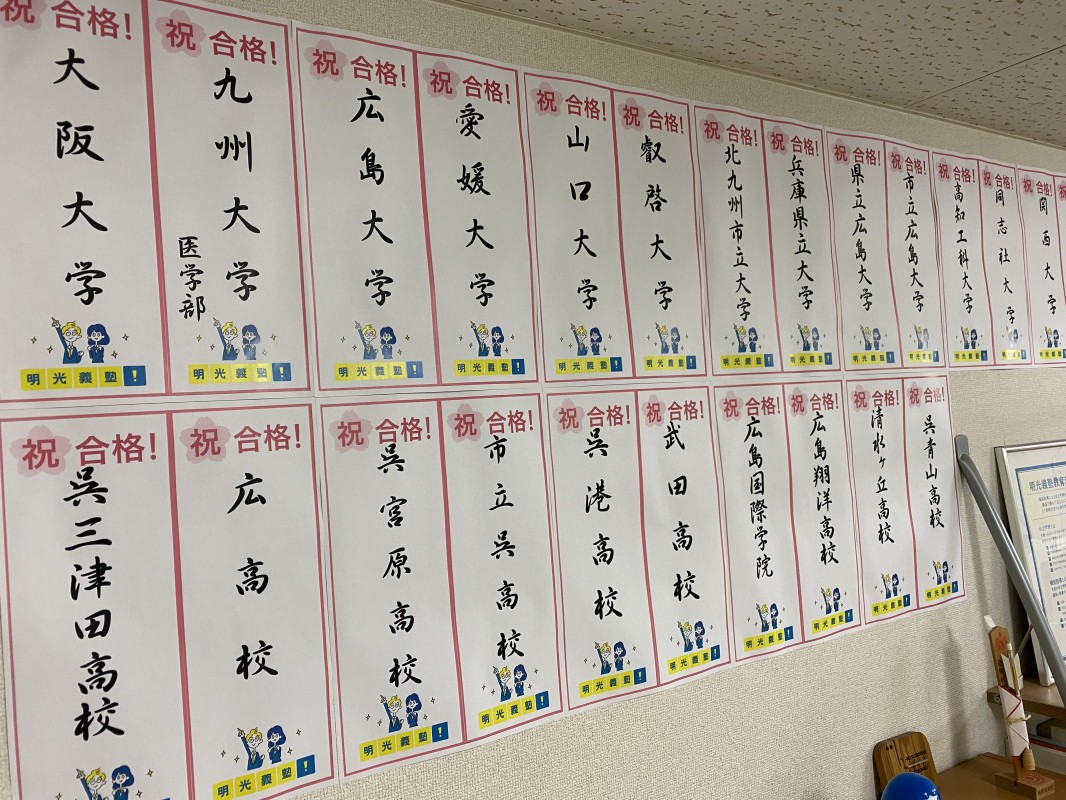 祝 合格!
大阪大学
明光義塾!
祝 合格!
九州大学
医学部
明光義塾!
祝 合格!
広島大学
明光義塾!
祝 合格!
愛媛大学
明光義塾!
祝 合格!
山口大学
明光義塾!
祝 合格!
叡啓大学
明光義塾!
祝 合格!
北九州市立大学
明光義塾!
祝 合格!
兵庫県立大学
明光義塾!
祝 合格!
県立広島大学
明光義塾!
祝 合格!
市立広島大学
明光義塾!
祝 合格!
高知工科大学
明光義塾!
祝 合格!
同志社大学
明光義塾!
祝 合格!
関西大学
明光義塾!
祝 合格!
呉三津田高校
明光義塾!
祝 合格!
広高校
明光義塾!
祝 合格!
呉宮原高校
明光義塾!
祝 合格!
市立呉高校
明光義塾!
祝 合格!
呉港高校
明光義塾!
祝 合格!
武田高校
明光義塾!
祝 合格!
広島国際学院
明光義塾!
祝 合格!
広島翔洋高校
明光義塾!
祝 合格!
清水ヶ丘高校
明光義塾!
祝 合格!
呉青山高校
明光義塾!
明光義塾教育